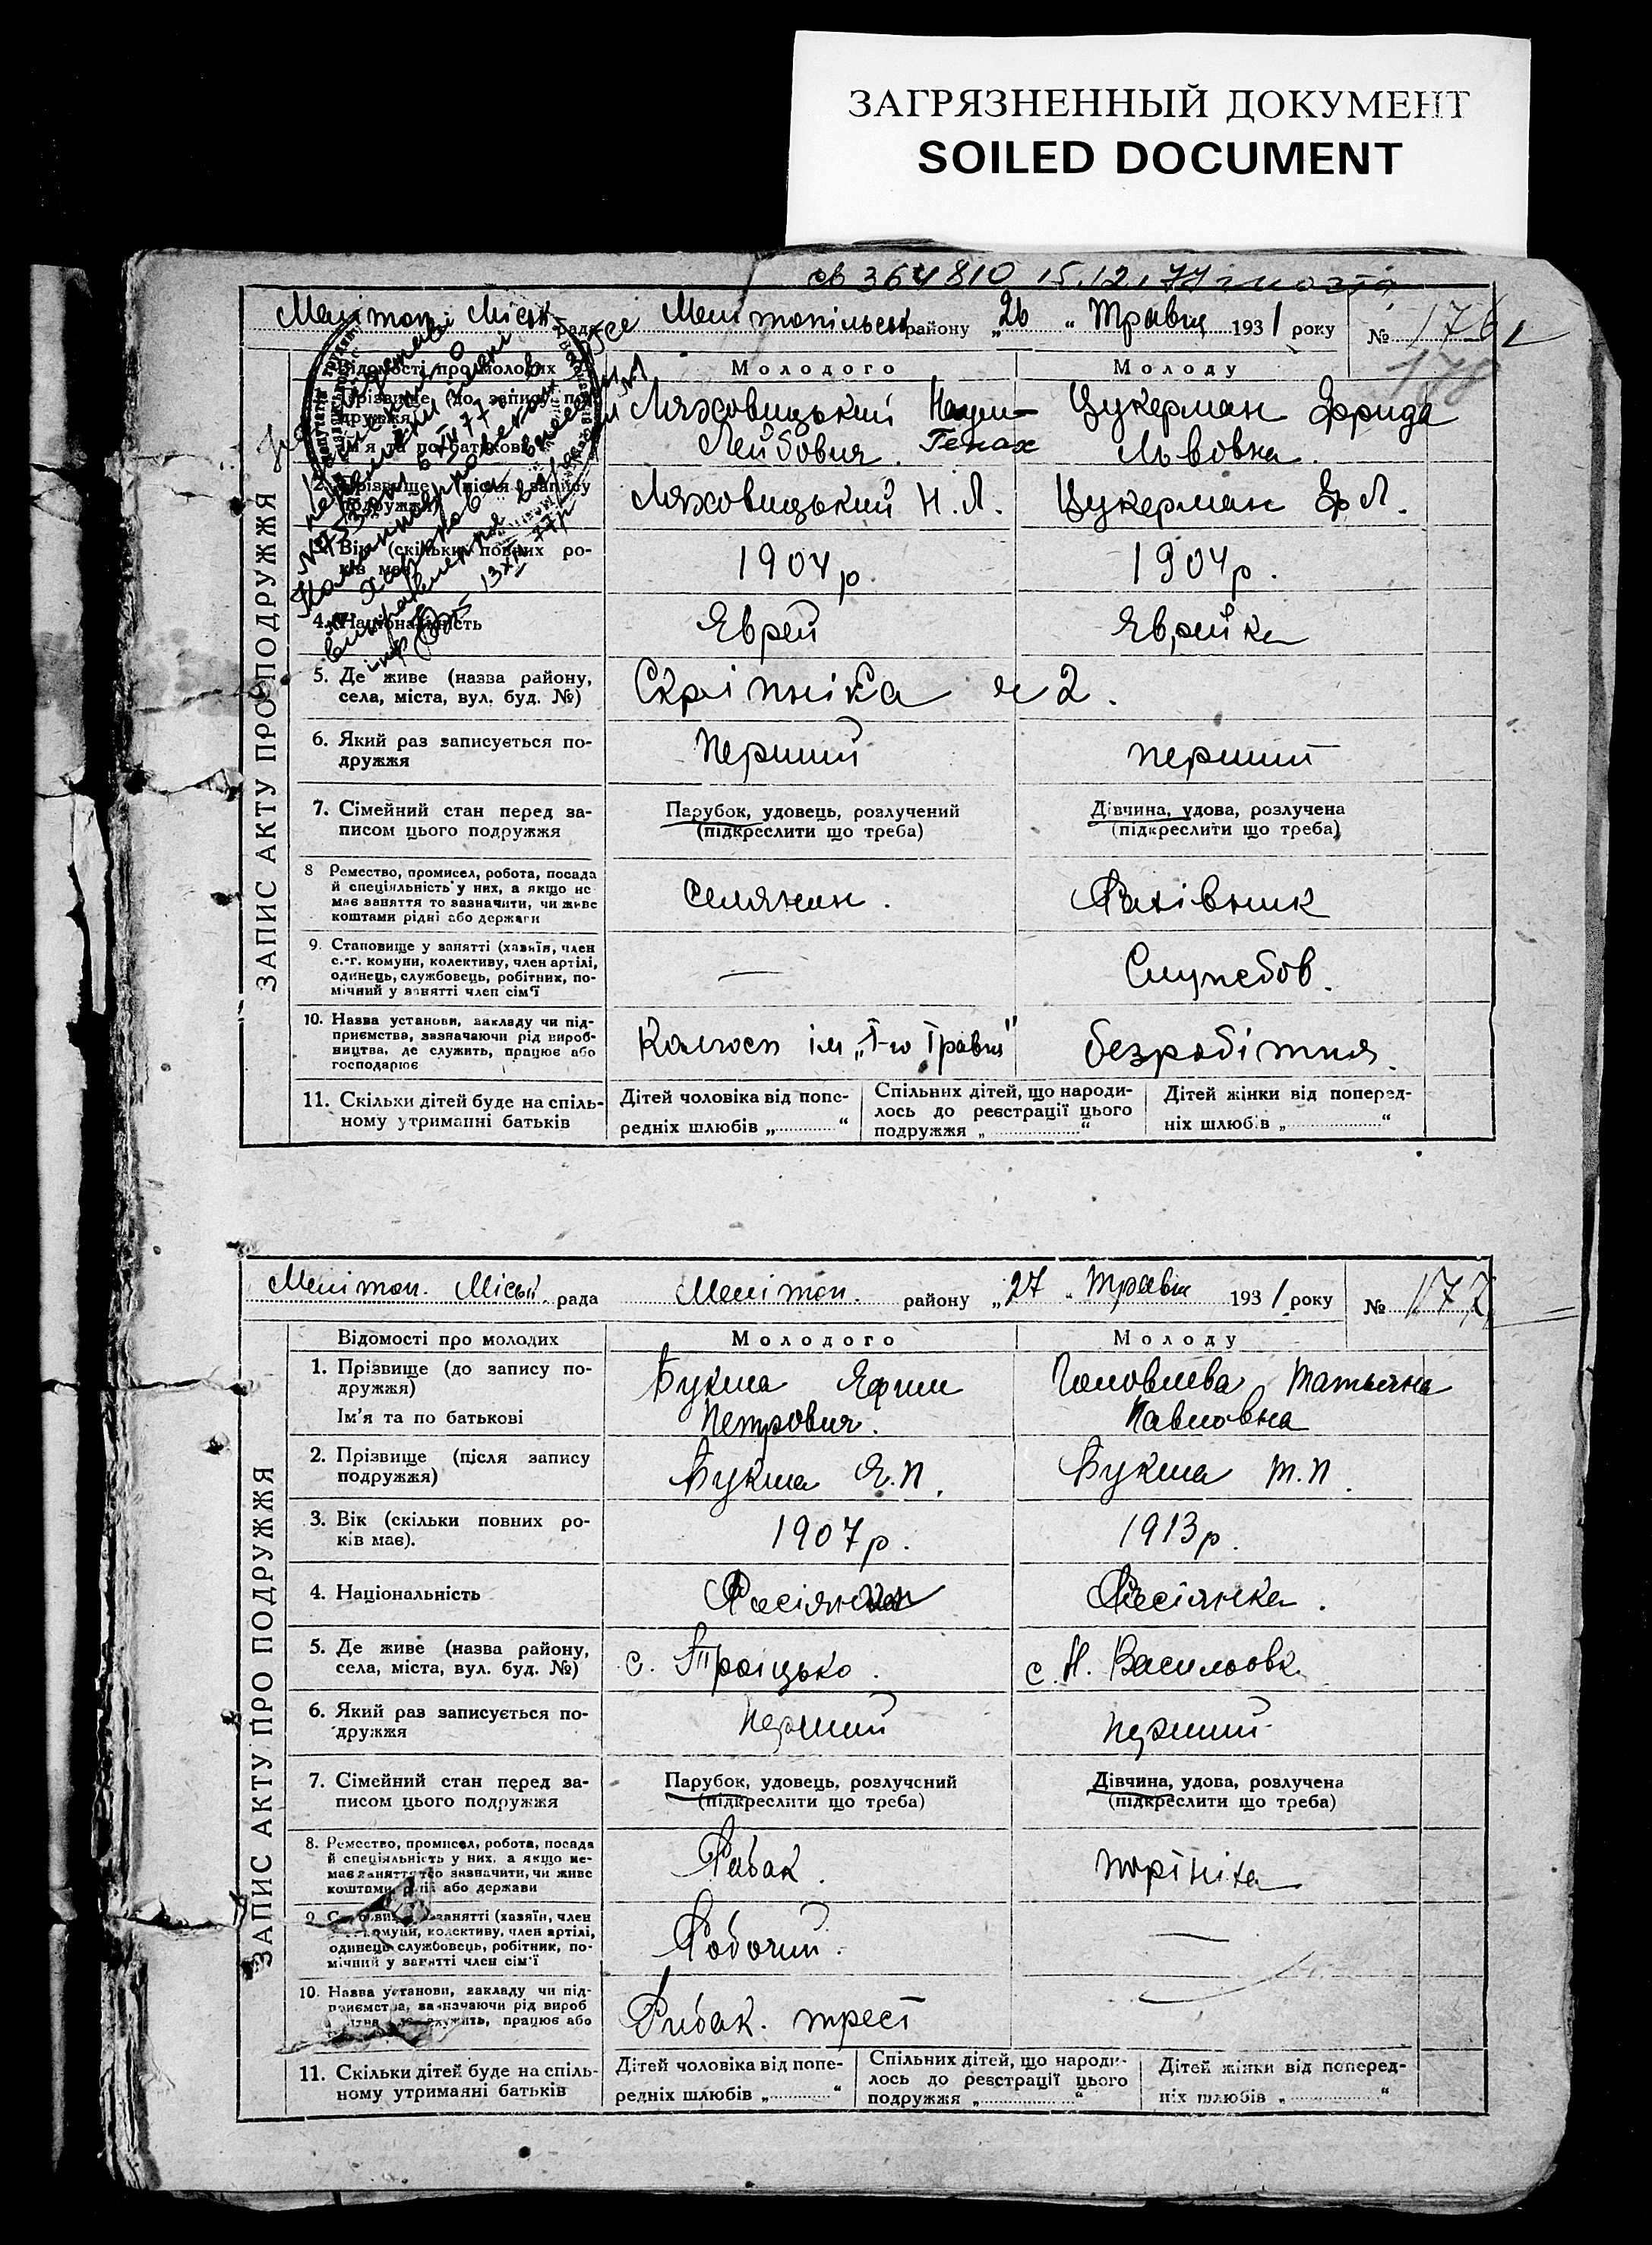 ЗАГРЯЗНЕННЫЙ ДОКУМЕНТ
SOILED DOCUMENT
св 364810 15.12.77
Мелітоп. Міськ рада Мелітопільськ району „26 “ Травня 1931 року № 176
178
ЗАПИС АКТУ ПРО ПОДРУЖЖЯ
Відомості про молодих Молодого Молоду
Прізвище (до запису подружжя) Ляховицький Наум- Цукерман Фрида
Ім'я та по батькові Лейбович. Генах Львовна.
2. Прізвище (після запису подружжя) Ляховицький Н.Л. Цукерман Ф.Л.
3. Вік (скільки повних років має) 1904 р. 1904 р.
4. Національність Еврей Еврейка
5. Де живе (назва району, Скріпніка № 2.
села, міста, вул. буд. №)
6. Який раз записується по- Перший перший
дружжя
7. Сімейний стан перед за- Парубок, удовець, розлучений Дівчина, удова, розлучена
писом цього подружжя (підкреслити що треба) (підкреслити що треба)
8 Ремество, промисел, робота, посада
й спеціяльність у них, а якщо не
має заняття то зазначити, чи живе
коштами рідні або держави
Селянин. Рахівник
9. Становище у занятті (хазяїн, член
с.-г. комуни, колективу, член артілі,
одинець, службовець, робітник, по-
мічний у занятті член сім'ї
— Службов.
10. Назва установи, закладу чи під-
приємства, зазначаючи рід вироб-
ництва, де служить, працює або
господарює
Колгосп ім „1-го Травня" безробітня.
11. Скільки дітей буде на спіль- Дітей чоловіка від попе- Спільних дітей, що народи- Дітей жінки від поперед-
ному утриманні батьків редніх шлюбів „ “ лось до реєстрації цього подружжя „ “ ніх шлюбів „ “
Мелітоп. Міськ. рада Мелітоп. району „27 „ Травня 1931 року № 177
ЗАПИС АКТУ ПРО ПОДРУЖЖЯ
Відомості про молодих Молодого Молоду
1. Прізвище (до запису по- Букша Ефим Головлева Татьяна
дружжя) Петрович. Павловна
Ім'я та по батькові
2. Прізвище (після запису Букша Е.П. Букша Т.П.
подружжя)
3. Вік (скільки повних ро- 1907 р. 1913 р.
ків має).
4. Національність Расіянин Расіянка.
5. Де живе (назва району, с. Троіцько. с. Н. Васильовк.
села, міста, вул. буд. №)
6. Який раз записується по- Перший Перший
дружжя
7. Сімейний стан перед за- Парубок, удовець, розлучений Дівчина, удова, розлучена
писом цього подружжя (підкреслити що треба) (підкреслити що треба)
8. Ремество, промисел, робота, посада
й спеціяльність у них, а якщо не-
має заняття то зазначити, чи живе
коштами рідні або держави
Рибак.
занятті (хазяїн, член
комуни, колективу, член артілі,
одинець службовець, робітник, по-
мічний у занятті член сім'ї
Робочий. —
10. Назва установи, закладу чи під-
приємства, зазначаючи рід вироб
служить, працює або
Рибак. трест
11. Скільки дітей буде на спіль- Дітей чоловіка від попе- Спільних дітей, що народи- Дітей жінки від поперед-
ному утриманні батьків редніх шлюбів „ “ лось до реєстрації цього подружжя „ “ ніх шлюбів „ “